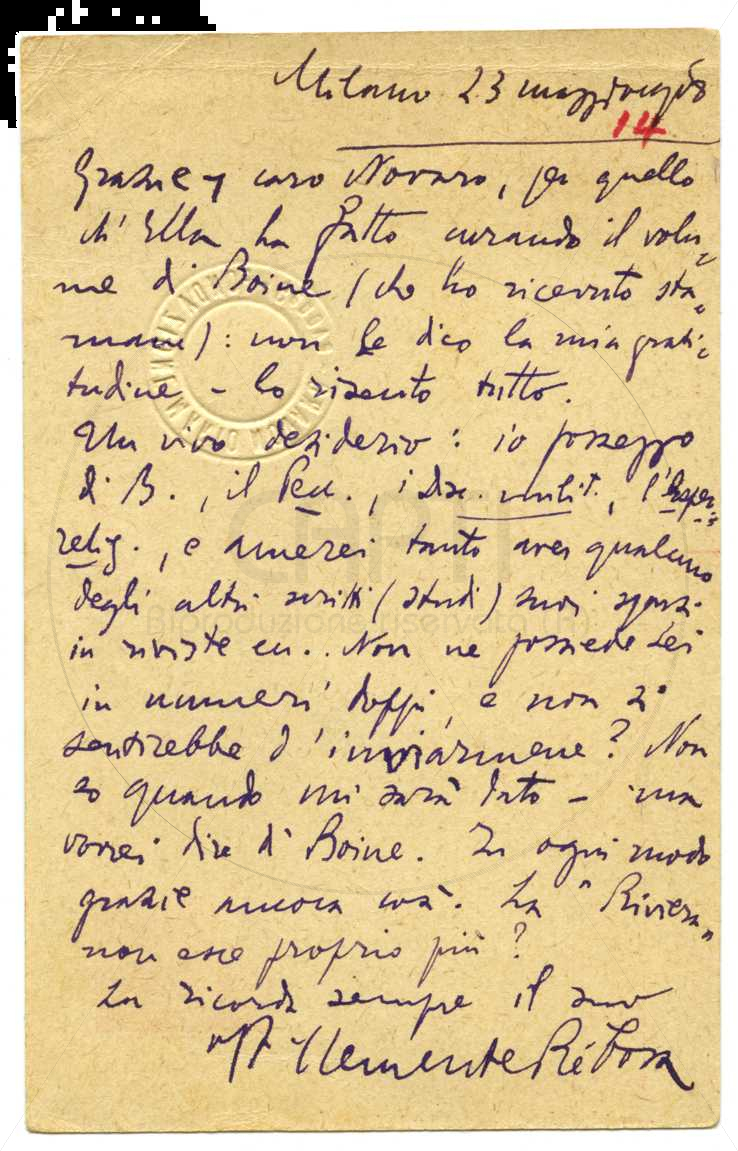 Milano 23 maggio 918
14
Grazie, caro Novaro, per quello
ch'Ella ha fatto curando il volu-
me di Boine (che ho ricevuto sta-
mani): non Le dico la mia grati-
tudine – ho risento tutto.
Un vivo desiderio: io posseggo
di B., il Pecc., i Disc. milit., l'Esper.
relig., e amerei tanto aver qualcuno
degli altri scritti (studi) suoi sparsi
in riviste ecc.. Non ne possiede Lei
in numeri doppi, e non si
sentirebbe d'inviarmene? Non
so quando mi sarà dato – ma
vorrei dire di Boine. In ogni modo
grazie ancora così. La "Riviera"
non esce proprio più?
La ricorda sempre il suo
Clemente Rèbora